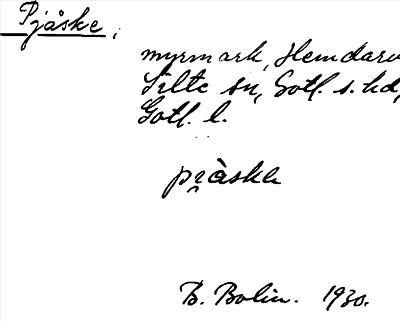 Pjåske,
myrmark, Hemdarve
Silte sn, Gotl. s. hd,
Gotl. l.
pi̯àska
B. Bolin. 1930.